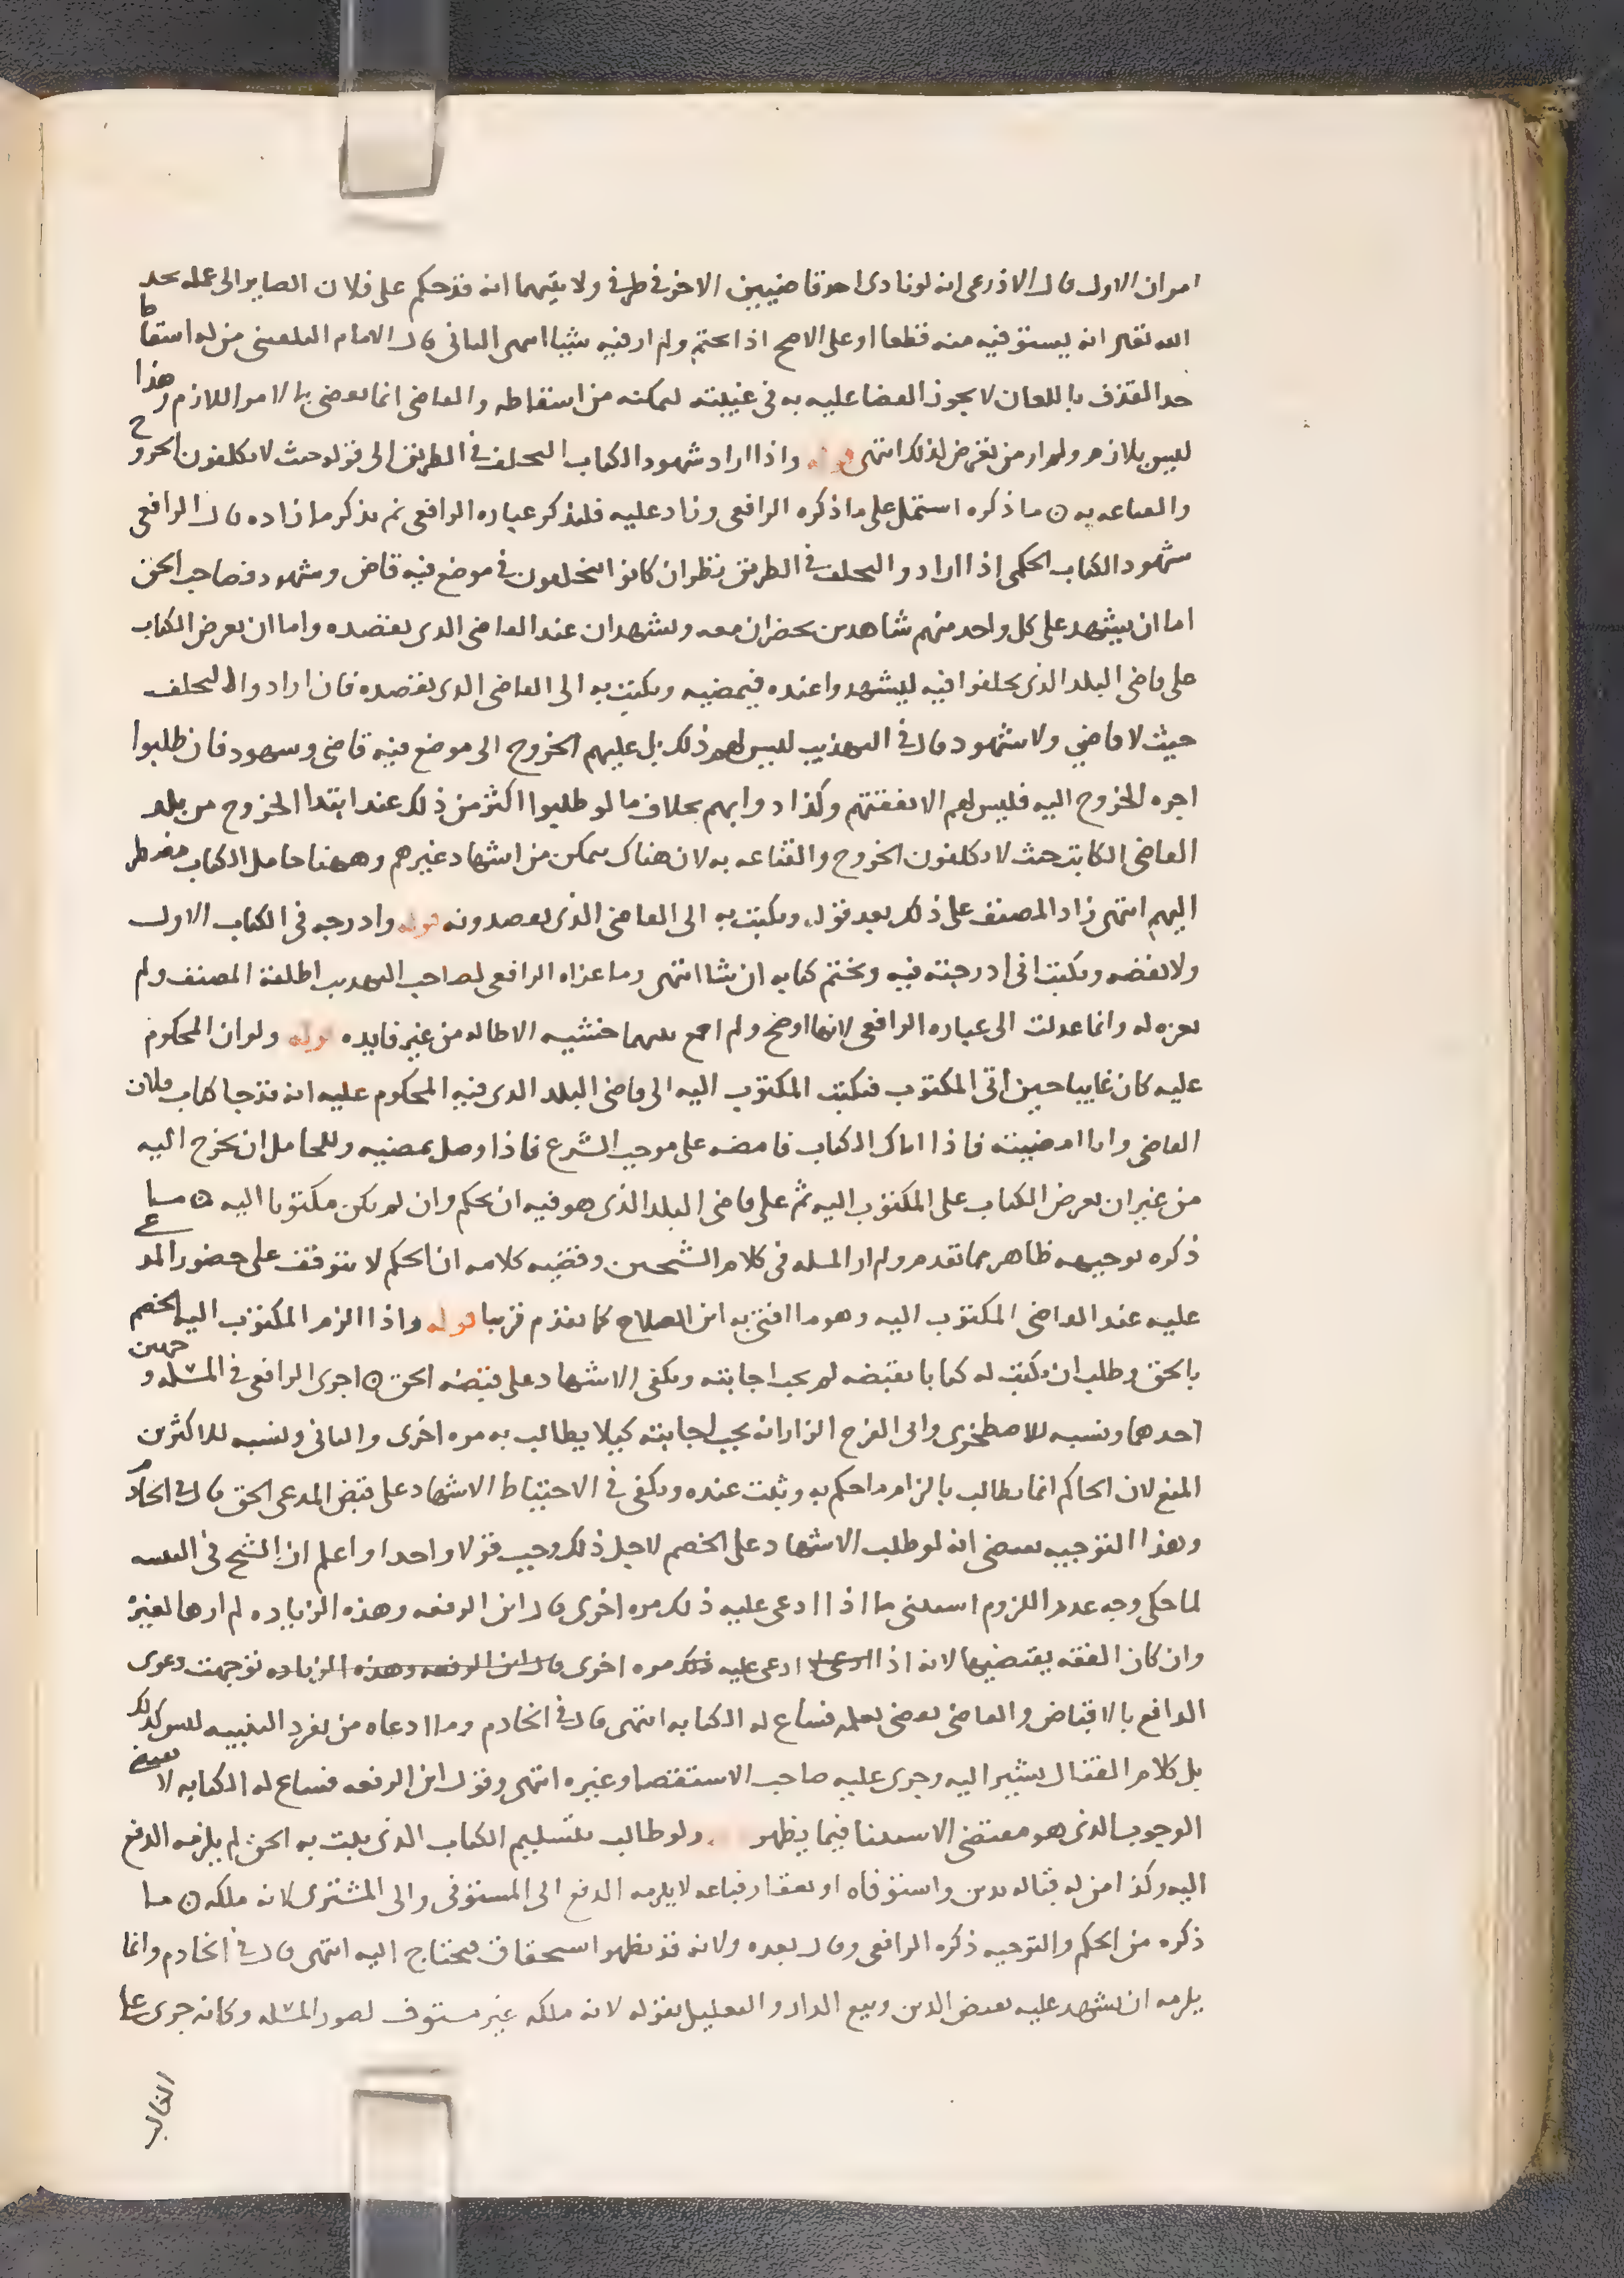 امران الاول قال الاذرعي انه لو نادى احد قاضيين الاخر في طرفي ولايتهما انه قد حكم على فلان الصاير الى عمله بحد
الله تعالى انه يستوفيه منه قطعا او على الاصح اذا تحتم ولم ار فيه شيئا انتهى الثاني قال الامام البلقيني من له اسقاط
حد القذف باللعان لا يجوز القضا عليه به في غيبته لتمكنه من اسقاطه والقاضي انما يقضي بالامر اللازم وهذا
ليس بلازم ولم ار من تعرض لذلك انتهى قوله واذا اراد شهود الكتاب التخلف في الطريق الى قوله حيث لا يكلفون الخروج
والقناعه به ما ذكره اشتمل على ما ذكره الرافعي وزاد عليه فلنذكر عباره الرافعي ثم نذكر ما زاده قال الرافعي
شهود الكتاب الحكمي اذا ارادوا التخلف في الطريق نظر ان كانوا يتخلفون في موضع فيه قاض وشهود فصاحب الحق
اما ان يشهد على كل واحد منهم شاهدين يحضران معه ويشهدان عند القاضي الذي يقصده واما ان يعرض الكتاب
على قاضي البلد الذي تخلفوا فيه ليشهدوا عنده فيمضيه ويكتب به الى القاضي الذي يقصده فان ارادوا التخلف
حيث لا قاضي ولا شهود قال في التهذيب ليس لهم ذلك بل عليهم الخروج الى موضع فيه قاضي وشهود فان طلبوا
اجره الخروج اليه فليس لهم الا نفقتهم وكذا دوابهم بخلاف ما لو طلبوا اكثر من ذلك عند ابتدا الخروج من بلد
القاضي الكاتب حيث لا يكلفون الخروج والقناعه به لان هناك يتمكن من اشهاد غيرهم وههنا حامل الكتاب مضطر
اليهم انتهى زاد المصنف على ذلك بعد قوله ويكتب به الى القاضي الذي يقصدونه قوله وادرجه في الكتاب الاول
ولا نفضه ويكتب اني ادرجته فيه ويختم كتابه ان شا انتهى وما عزاه الرافعي لصاحب التهذيب اطلقه المصنف ولم
يعزه له وانما عدلت الى عباره الرافعي لانها اوضح ولم اجمع بينهما خشيه الاطاله من غير فايده قوله ولو ان المحكوم
عليه كان غايبا حين اتى المكتوب فيكتب المكتوب اليه الى قاضي البلد الذي فيه المحكوم عليه انه قد جا كتاب فلان
القاضي وانا امضيته فاذا اتاك الكتاب فامضه على موجب الشرع فاذا وصل يمضيه وللحامل ان يخرج اليه
من غير ان يعرض الكتاب على المكتوب اليه ثم على قاضي البلد الذي هو فيه ان يحكم وان لم يكن مكتوبا اليه ما
ذكره توجيهه ظاهر مما تقدم ولم ار المسله في كلام الشيخين وقضيه كلامه ان الحكم لا يتوقف على حضور المدعى
عليه عند القاضي المكتوب اليه وهو ما افتى به ابن الصلاح كما تقدم قريبا قوله واذا الزم المكتوب اليه الخصم
بالحق وطلب ان يكتب له كتابا بقبضه لم يجب اجابته ويكفي الاشهاد على قبضه الحق اجرى الرافعي في المسئله وجهين
احدهما ونسبه للاصطخري وابي الفرج الزاز انه يجب اجابته كيلا يطالب به مره اخرى والثاني ونسبه للاكثرين
المنع لان الحاكم انما يطالب بالزام ما حكم به وثبت عنده ويكفي في الاحتياط الاشهاد على قبض المدعي الحق قال في الخادم
وهذا التوجيه يقتضي انه لو طلب الاشهاد على الخصم لاجل ذلك وجب قولا واحدا واعلم ان الشيخ في التنبيه
لما حكى وجه عدم اللزوم استثنى ما اذا ادعى عليه ذلك مره اخرى قال ابن الرفعه وهذه الزياده لم ارها لغيره
وان كان الفقه يقتضيها لانه اذا ادعى عليه ذلك مره اخرى قال ابن الرفعه وهذه الزياده توجهت دعوى
الدافع بالاقباض والقاضي يقضي بعلمه فساغ له الكتابه انتهى قال في الخادم وما ادعاه من تفرد التنبيه ليس كذلك
بل كلام القفال يشير اليه وجرى عليه صاحب الاستقصا وغيره انتهى وقول ابن الرفعه فساغ له الكتابه لا يقتضي
الوجوب الذي هو مقتضى الاستثنا فيما يظهر ولو طالب بتسليم الكتاب الذي يثبت به الحق لم يلزمه الدفع
اليه وكذا من له قباله بدين واستوفاه او بعقار فباعه لا يلزمه الدفع الى المستوفى والى المشتري لانه ملكه ما
ذكره من الحكم والتوجيه ذكره الرافعي وقال بعده ولانه قد يظهر استحقاق فيحتاج اليه انتهى قال في الخادم وانما
يلزمه ان يشهد عليه بقبض الدين وبيع الدار والتعليل بقوله لانه ملكه غير مستوف لصور المسئله وكانه جرى على
الغالب